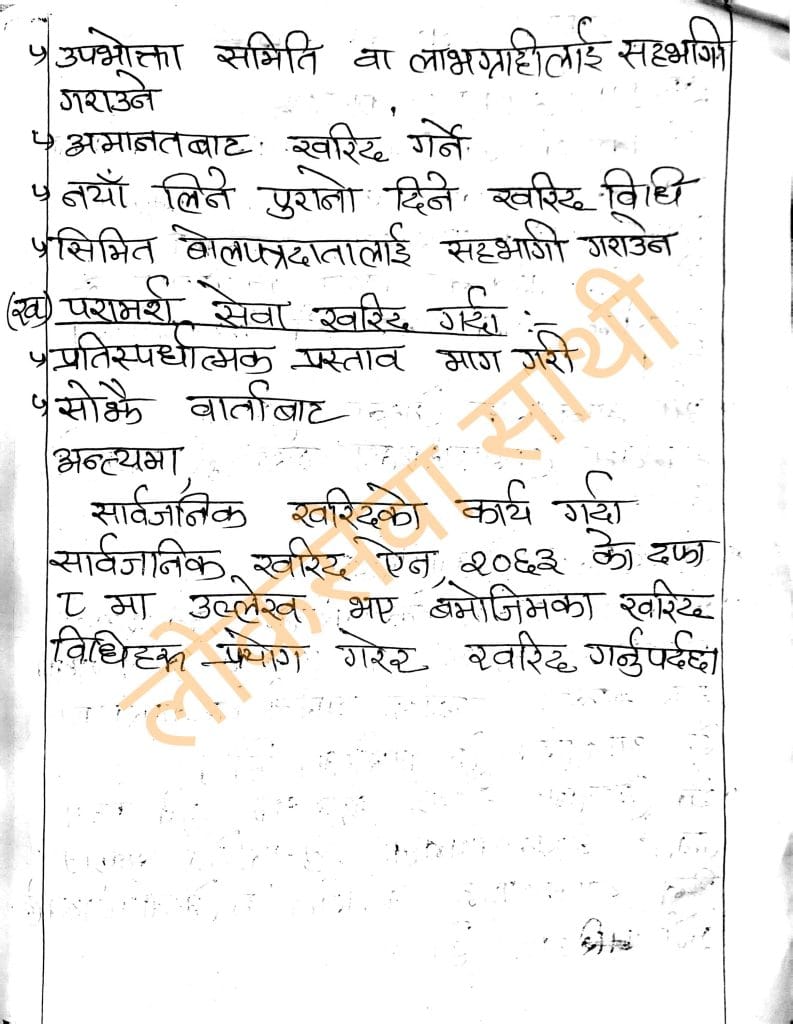 ↳ उपभोक्ता समिति वा लाभग्राहीलाई सहभागी
गराउने
↳ अमानतबाट खरिद गर्ने
↳ नयाँ लिने पुरानो दिने खरिद विधि
↳ सिमित बोलपत्रदातालाई सहभागी गराउने
(ख) परामर्श सेवा खरिद गर्दा :-
↳ प्रतिस्पर्धात्मक प्रस्ताव माग गरी
↳ सोझै वार्ताबाट
अन्त्यमा,
सार्वजानिक खरिदको कार्य गर्दा
सार्वजानिक खरिद ऐन, २०६३ को दफा
८ मा उल्लेख भए बमोजिमका खरिद
विधिहरू प्रयोग गरेर खरिद गर्नुपर्दछ।
लोकसेवा साथी